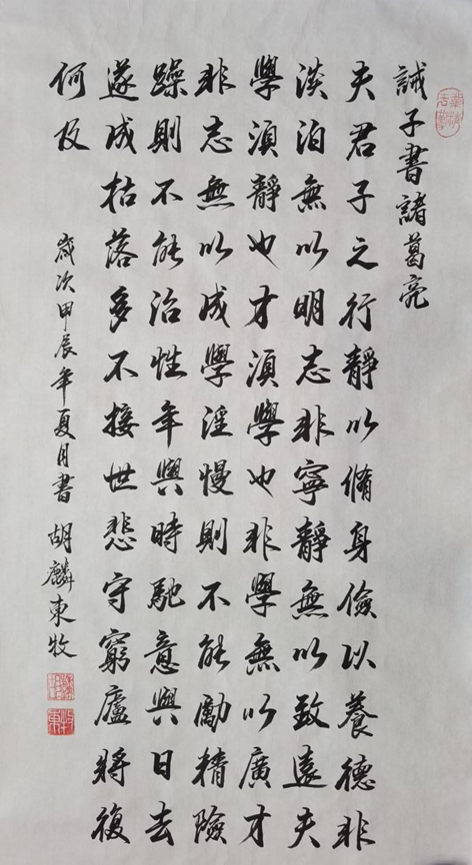 誡子書諸葛亮
夫君子之行靜以脩身儉以養德非
淡泊無以明志非寧靜無以致遠夫
學須靜也才須學也非學無以廣才
非志無以成學淫慢則不能勵精險
躁則不能治性年與時馳意與日去
遂成枯落多不接世悲守窮廬將復
何及
歲次甲辰年夏月書 胡麟東牧